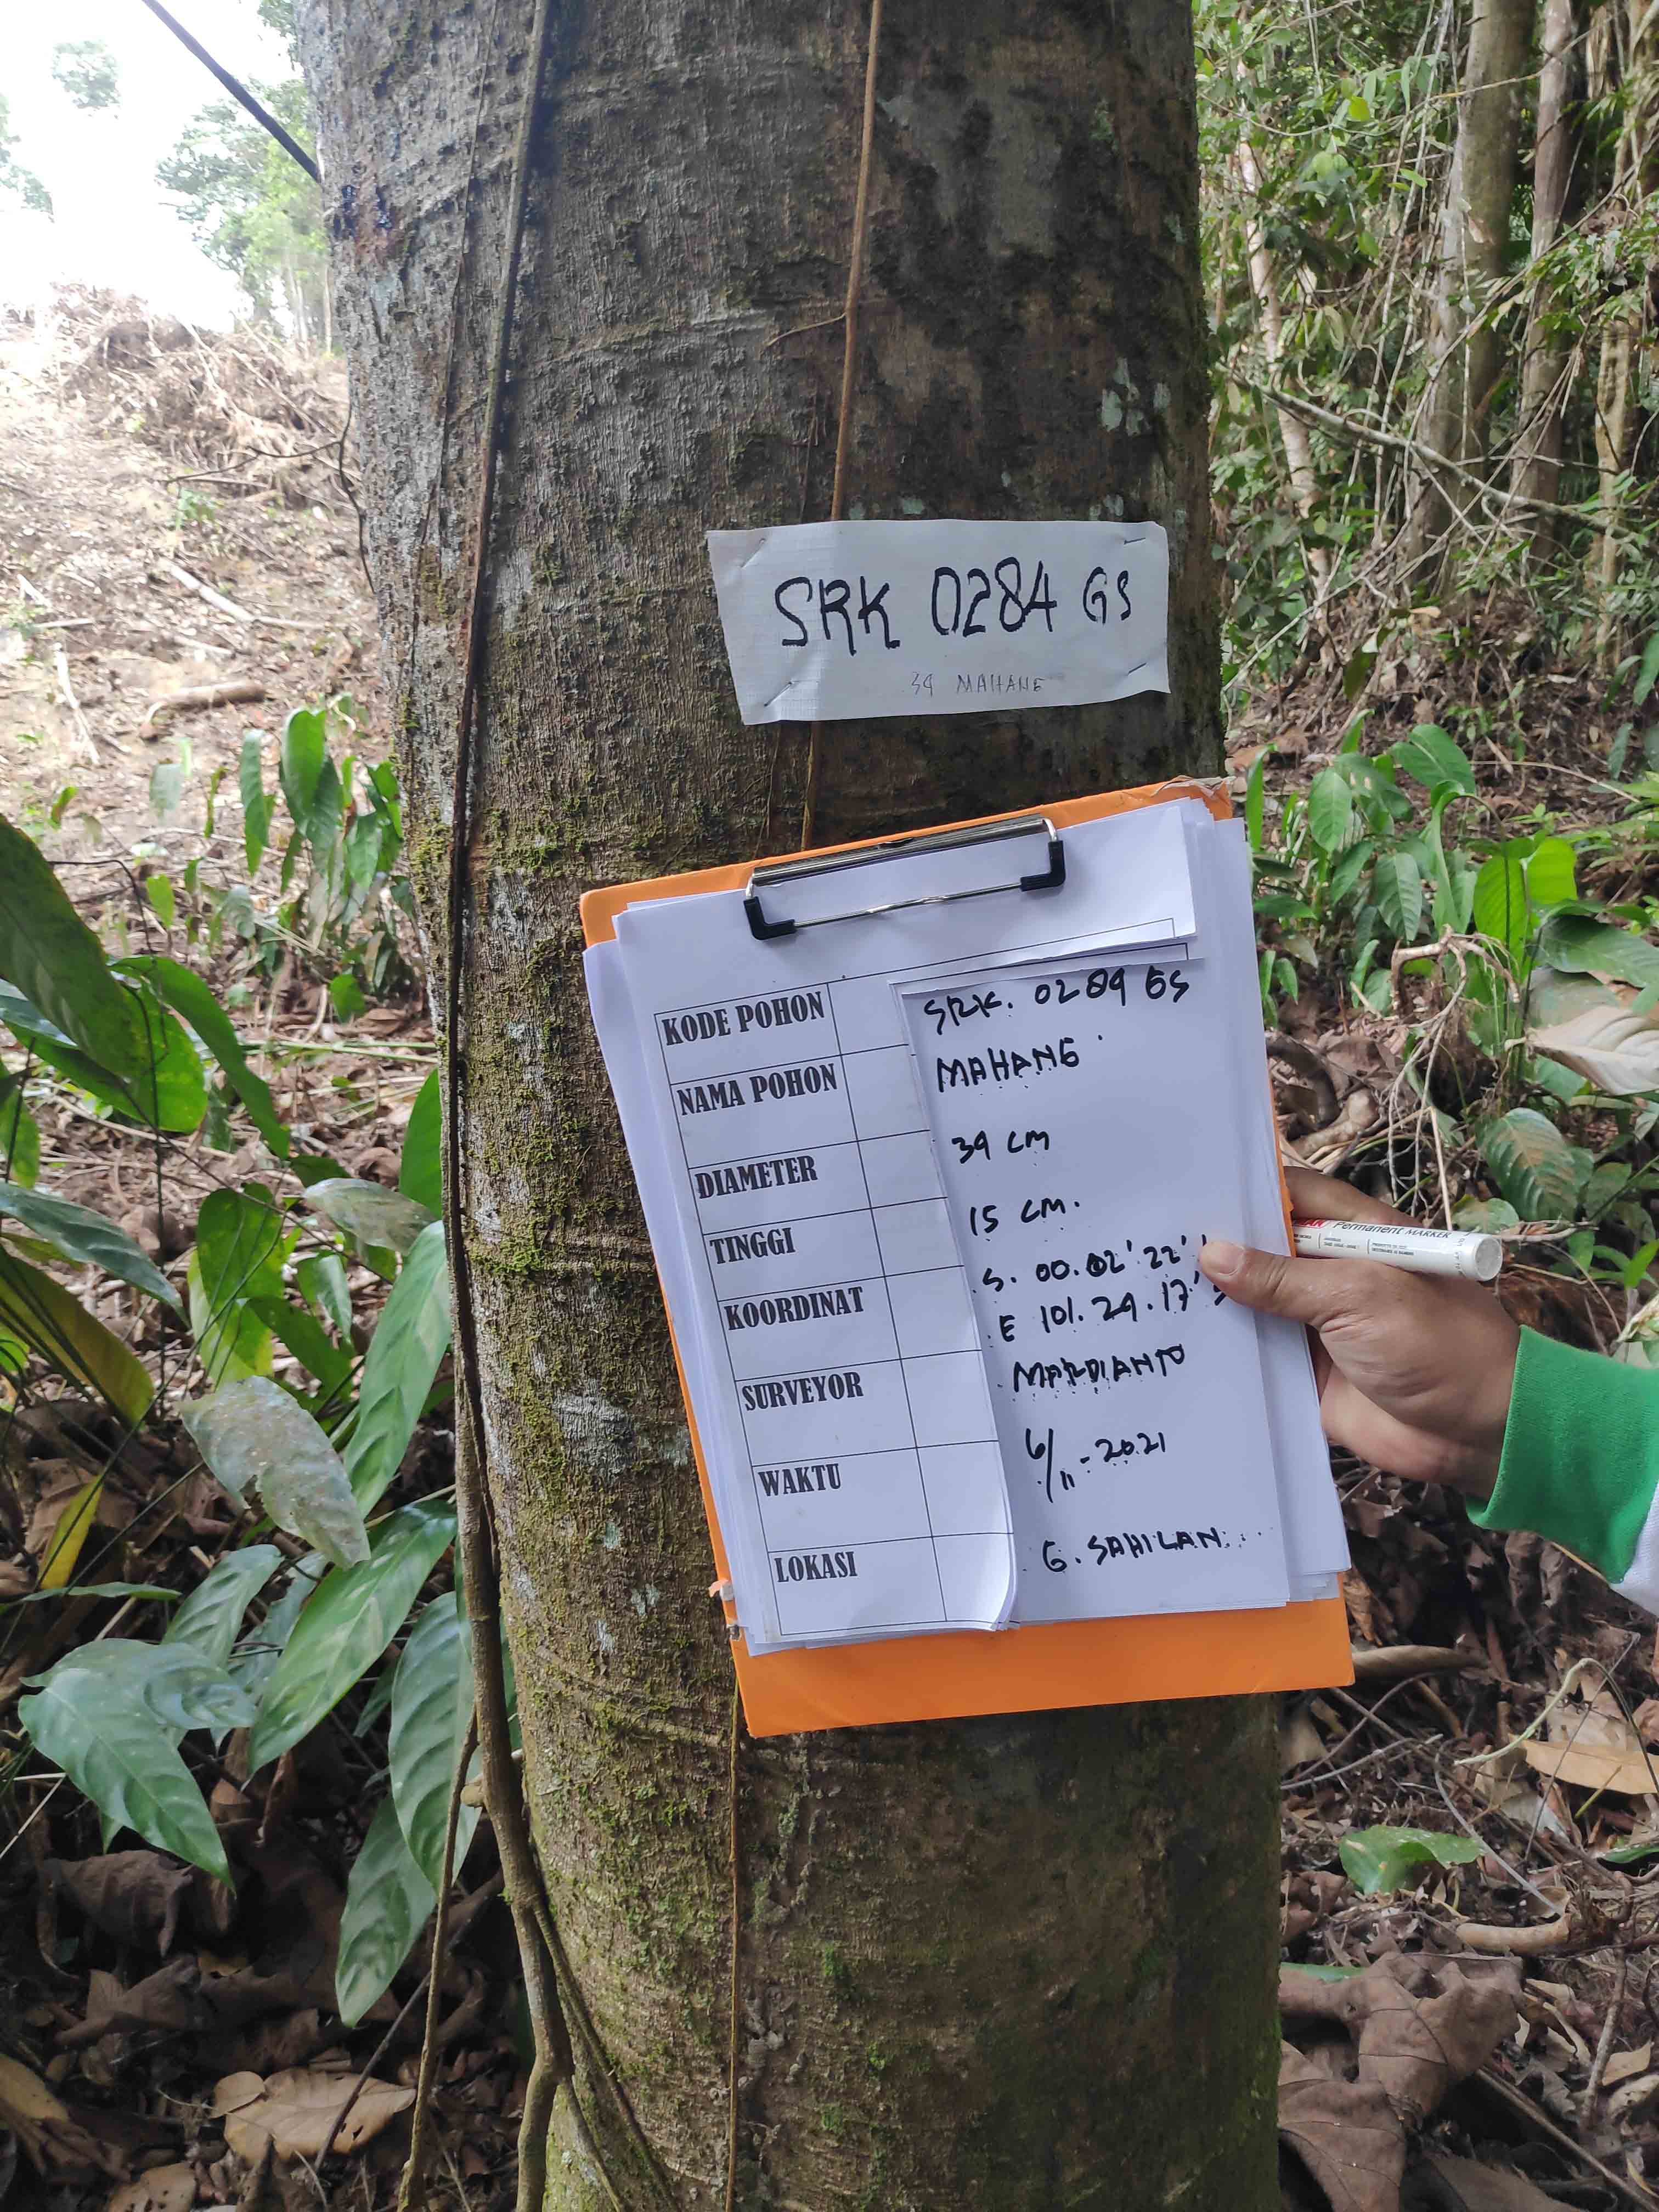 SRK 0284 GS
34 MAHANE
KODE POHON SRK. 0284 GS
NAMA POHON MAHANG
DIAMETER 34 CM
TINGGI 15 CM.
KOORDINAT S. 00. 02' 22'
E 101. 24. 17'
SURVEYOR MARDIANTO
WAKTU 6/11-2021
LOKASI G. SAHILAN
Permanent MARKER